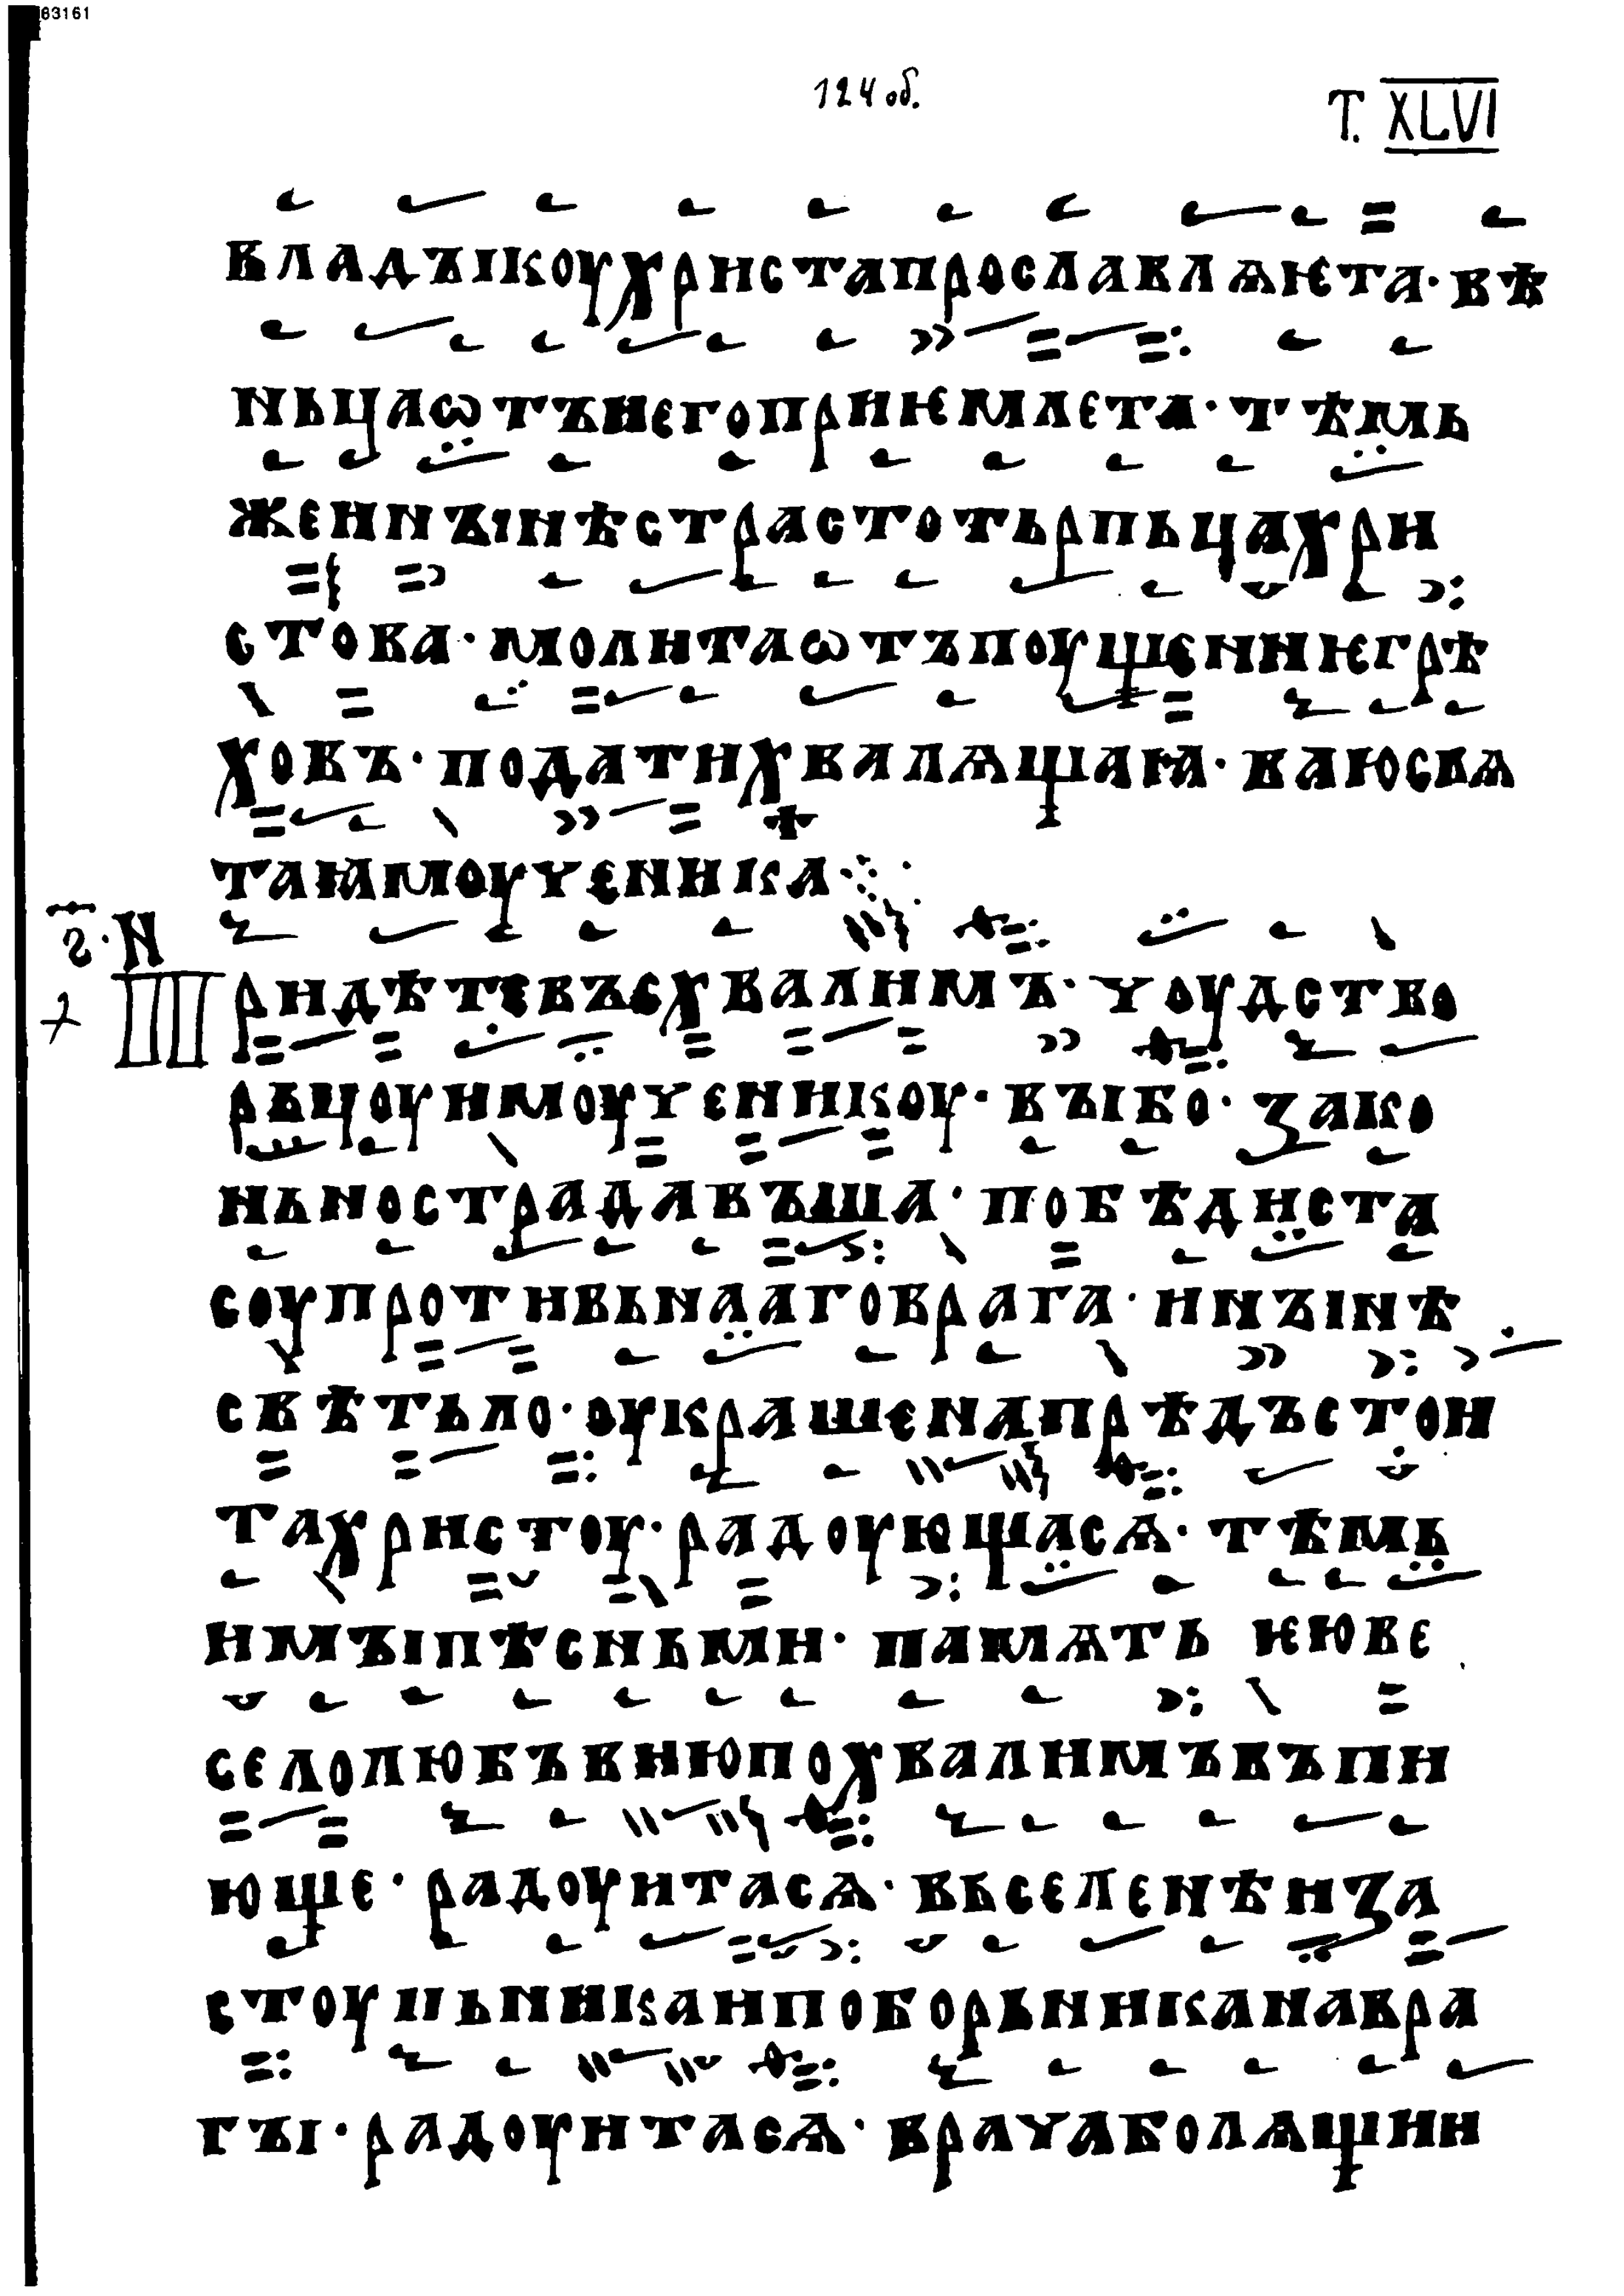 63161
124 об.
Т. XLVI
владꙑкоу христа прославлѧѥта · вѣ
ньца ѡтъ него приѥмлета · тѣмь
же и нꙑнѣ страстотьрпьца хри
стова · молита ѡтъпоущениѥ грѣ
ховъ · подати хвалѧщаꙗ · ваю свѧ
таꙗ моученика ⁘
ꙅ · N
Придѣте въсхвалимъ · чоудство
рьцоу и моученикоу · вꙑ бо · зако
ньно страдавъша · побѣдиста
соупротивьнааго врага · и нꙑнѣ
свѣтьло · оукрашена прѣдъстои
та христоу · радоующасѧ · тѣмь
имꙑ пѣсньми · памѧть ѥю ве
село любъвию похвалимъ въпи
юще · радоуитасѧ · вьселенѣи за
стоупьника и поборьника на вра
гꙑ · радоуитасѧ · врача болѧщии